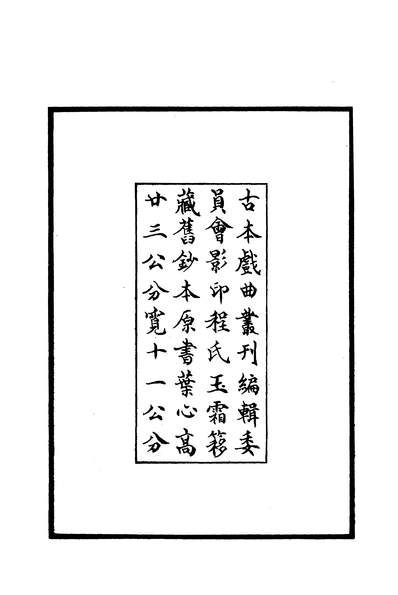 古本戲曲叢刊編輯委
員會影印程氏玉霜簃
藏舊鈔本原書葉心高
廿三公分寬十一公分